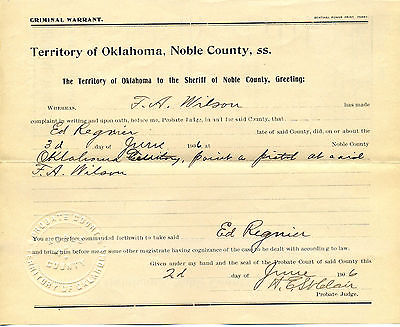 CRIMINAL WARRANT.
SENTINEL POWER PRINT, PERRY.
Territory of Oklahoma, Noble County, ss.
The Territory of Oklahoma to the Sheriff of Noble County, Greeting:
WHEREAS, F. A. Wilson has made
complaint in writing and upon oath, before me, Probate Judge, in and for said County, that
Ed Regnier late of said County, did, on or about the
3d day of June 1906 at Noble County
Oklahoma Territory, point a pistol at said
F. A. Wilson
You are therefore commanded forthwith to take said Ed Regnier
and bring him before me or some other magistrate having cognizance of the case to be dealt with according to law.
Given under my hand and the seal of the Probate Court of said County this
2d day of June 1906
St Clair
Probate Judge.
PROBATE COURT
COUNTY
TERRITORY OF OKLAHOMA